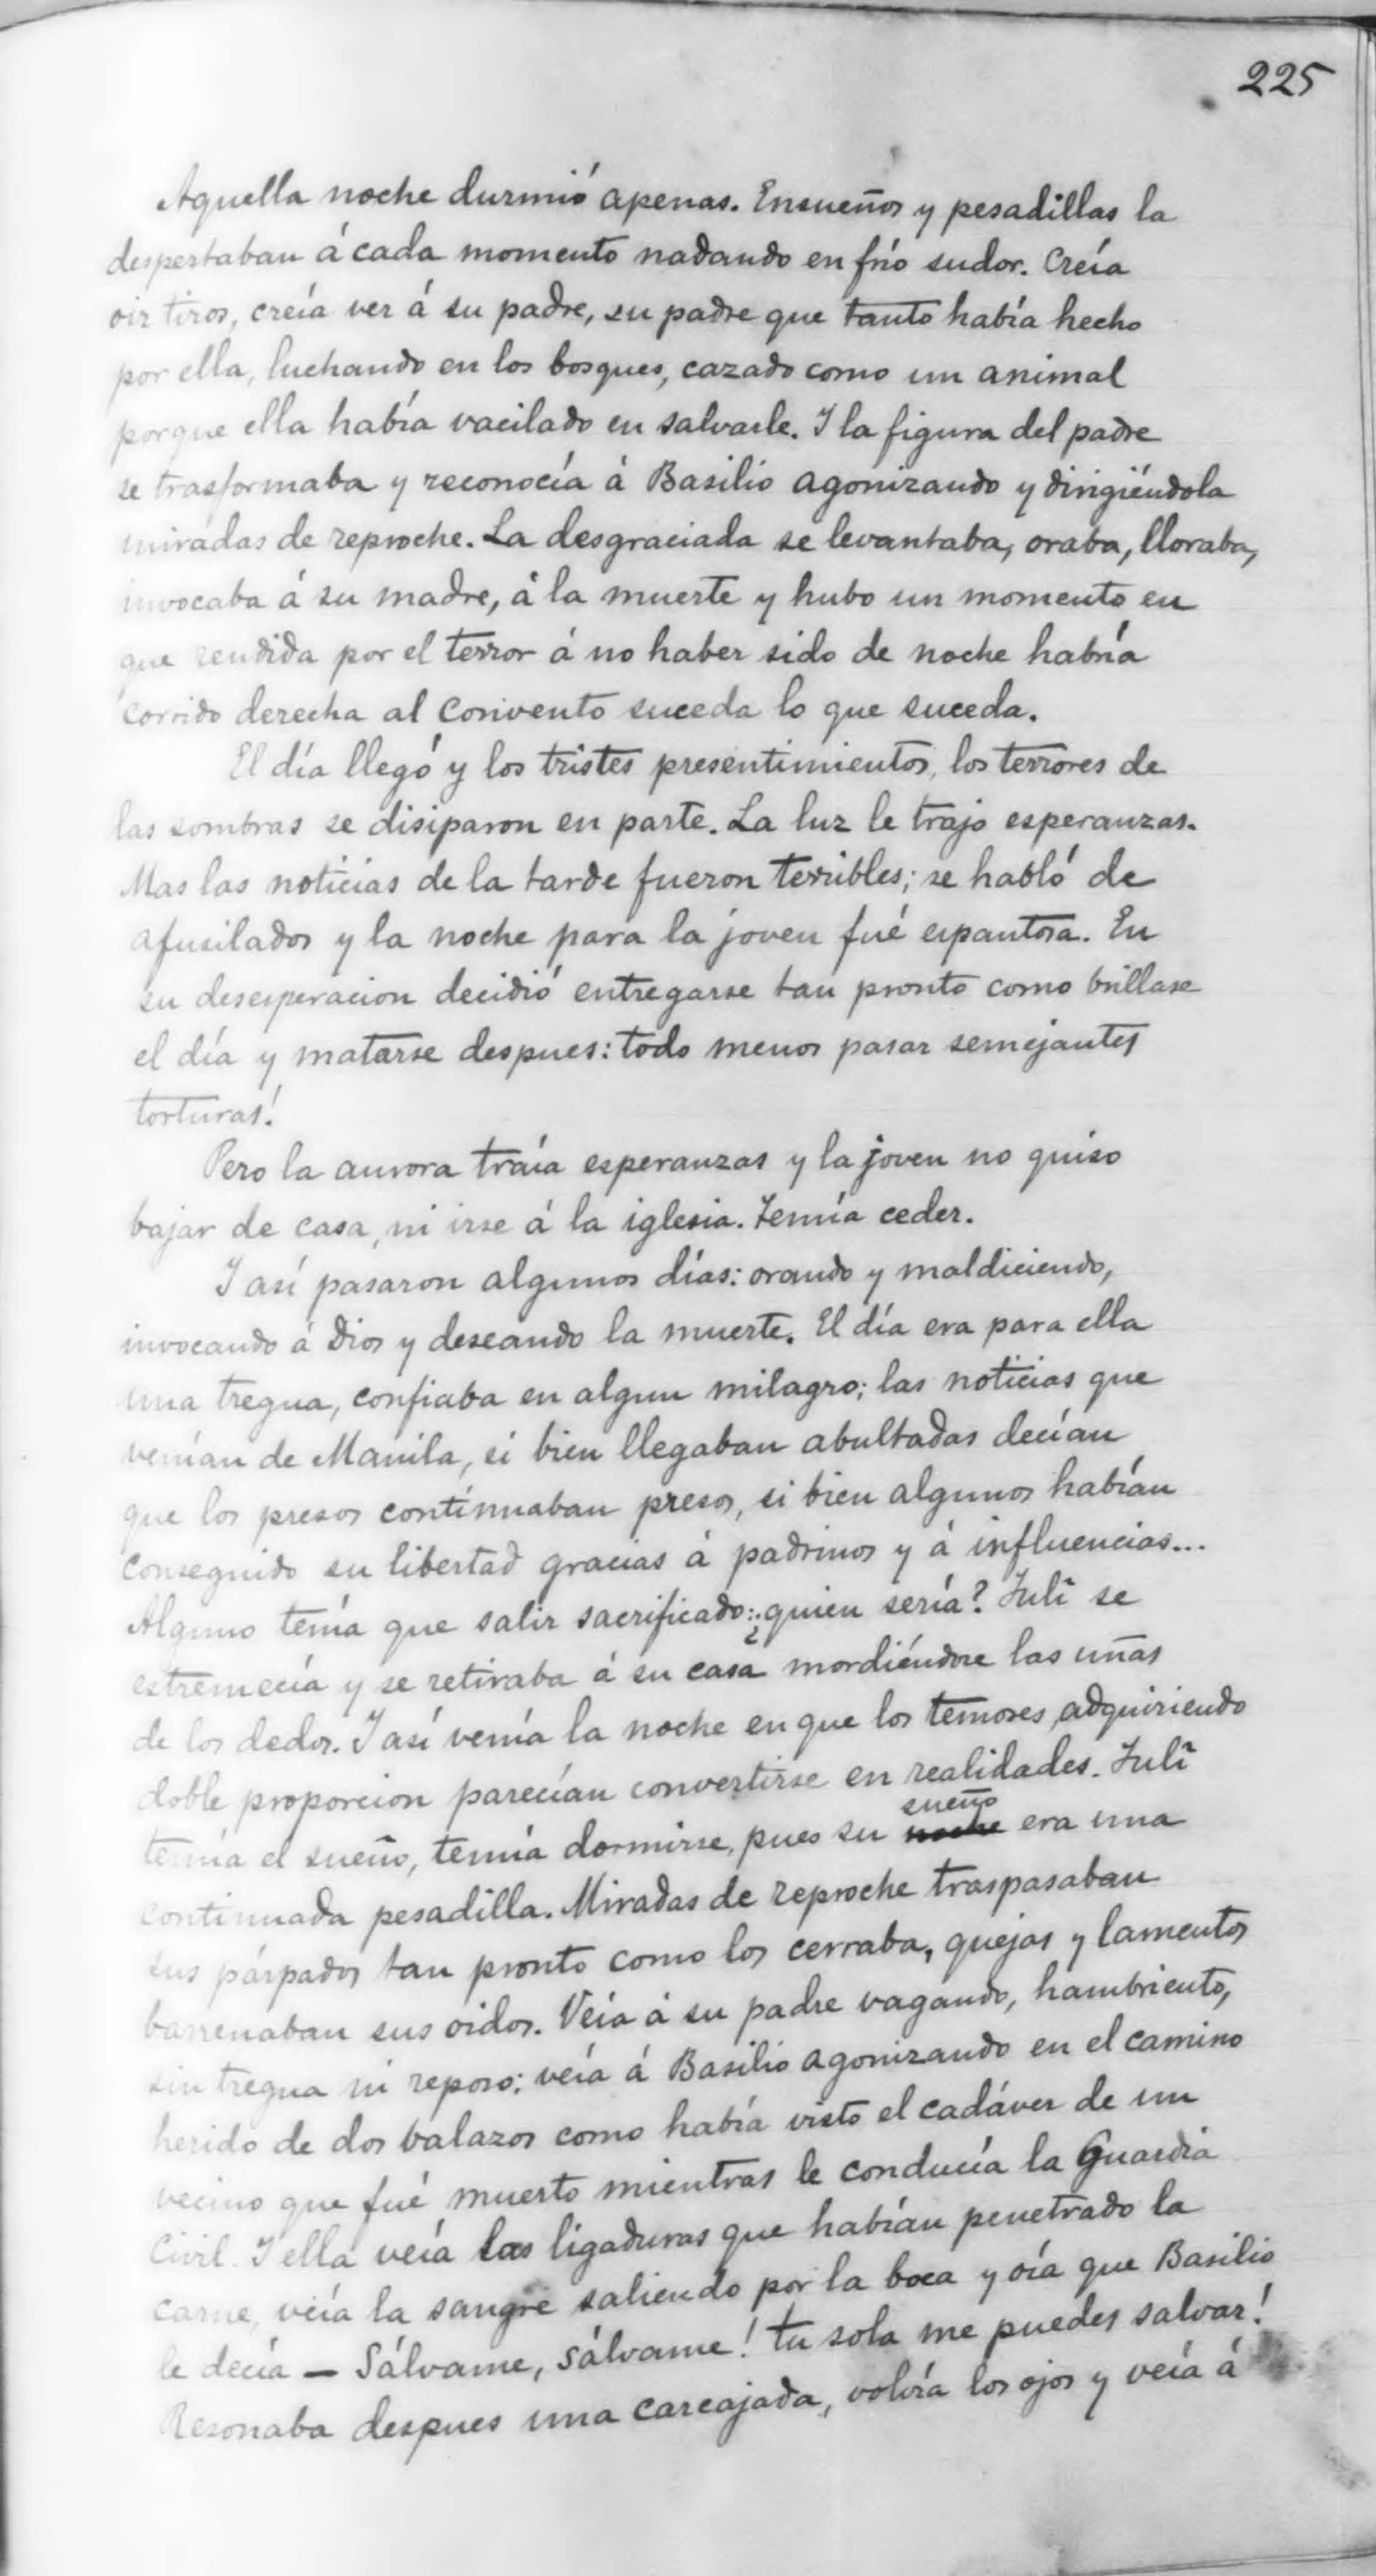 225
Aquella noche durmió apenas. Ensueños y pesadillas la
despertaban á cada momento nadando en frío sudor. Creía
oir tiros, creía ver á su padre, su padre que tanto había hecho
por ella, luchando en los bosques, cazado como un animal
porque ella había vacilado en salvarle. Y la figura del padre
se trasformaba y reconocía á Basilio agonizando y dirigiéndola
miradas de reproche. La desgraciada se levantaba, oraba, lloraba,
invocaba á su madre, á la muerte y hubo un momento en
que rendida por el terror á no haber sido de noche habría
corrido derecha al convento suceda lo que suceda.
El día llegó y los tristes presentimientos, los terrores de
las sombras se disiparon en parte. La luz le trajo esperanzas.
Mas las noticias de la tarde fueron terribles; se habló de
afusilados y la noche para la joven fué espantosa. En
su desesperacion decidió entregarse tan pronto como brillase
el día y matarse despues: todo menos pasar semejantes
torturas!
Pero la aurora traía esperanzas y la joven no quiso
bajar de casa, ni irse á la iglesia. Temía ceder.
Y así pasaron algunos días: orando y maldiciendo,
invocando á Dios y deseando la muerte. El día era para ella
una tregua, confiaba en algun milagro; las noticias que
venían de Manila, si bien llegaban abultadas decían
que los presos continuaban presos, si bien algunos habían
conseguido su libertad gracias á padrinos y á influencias...
Alguno tenía que salir sacrificado: ¿quien sería? Julî se
estremecía y se retiraba á su casa mordiéndose las uñas
de los dedos. Y así venía la noche en que los temores adquiriendo
doble proporcion parecían convertirse en realidades. Julî
temía el sueño, temía dormirse, pues su noche sueño era una
continuada pesadilla. Miradas de reproche traspasaban
sus párpados tan pronto como los cerraba, quejas y lamentos
barrenaban sus oidos. Veía á su padre vagando, hambriento,
sin tregua ni reposo; veía á Basilio agonizando en el camino
herido de dos balazos como había visto el cadáver de un
vecino que fué muerto mientras le conducía la Guardia
Civil. Y ella veía las ligaduras que habían penetrado la
carne, veía la sangre saliendo por la boca y oía que Basilio
le decía — Sálvame, sálvame! tu sola me puedes salvar!
Resonaba despues una carcajada, volvía los ojos y veía á